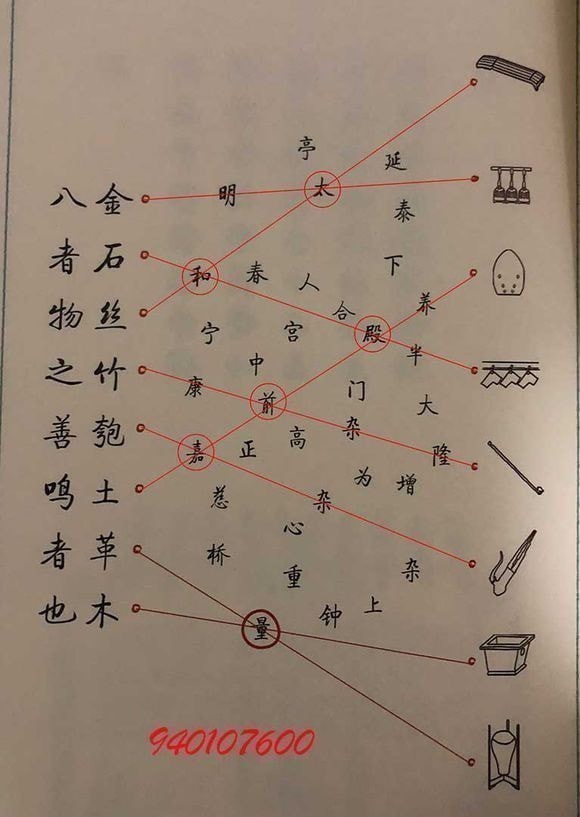 金石丝竹匏土革木
八者物之善鸣者也
亭
延
明 太
泰
下
和 春 人
合 养
宁 宫 殿
半
中
康 前 门 大
杂
嘉 正 高 隆
为 增
慈 杂
心
桥 重 杂
钟 上
量
940107600